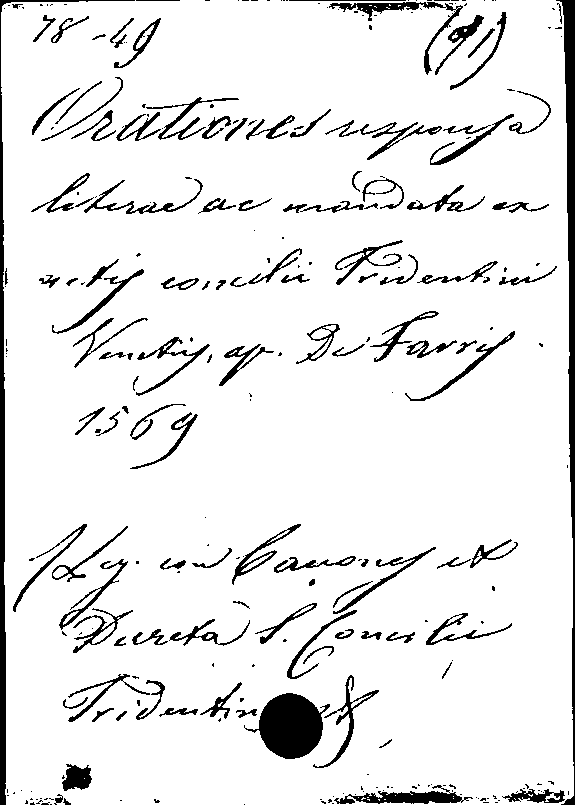 78-49 (91)
Orationes responsa
literae ac mandata ex
actis concilii Tridentini
Venetiis, ap. De Farris.
1569
(Leg. con Canones et
Decreta S. Concilii